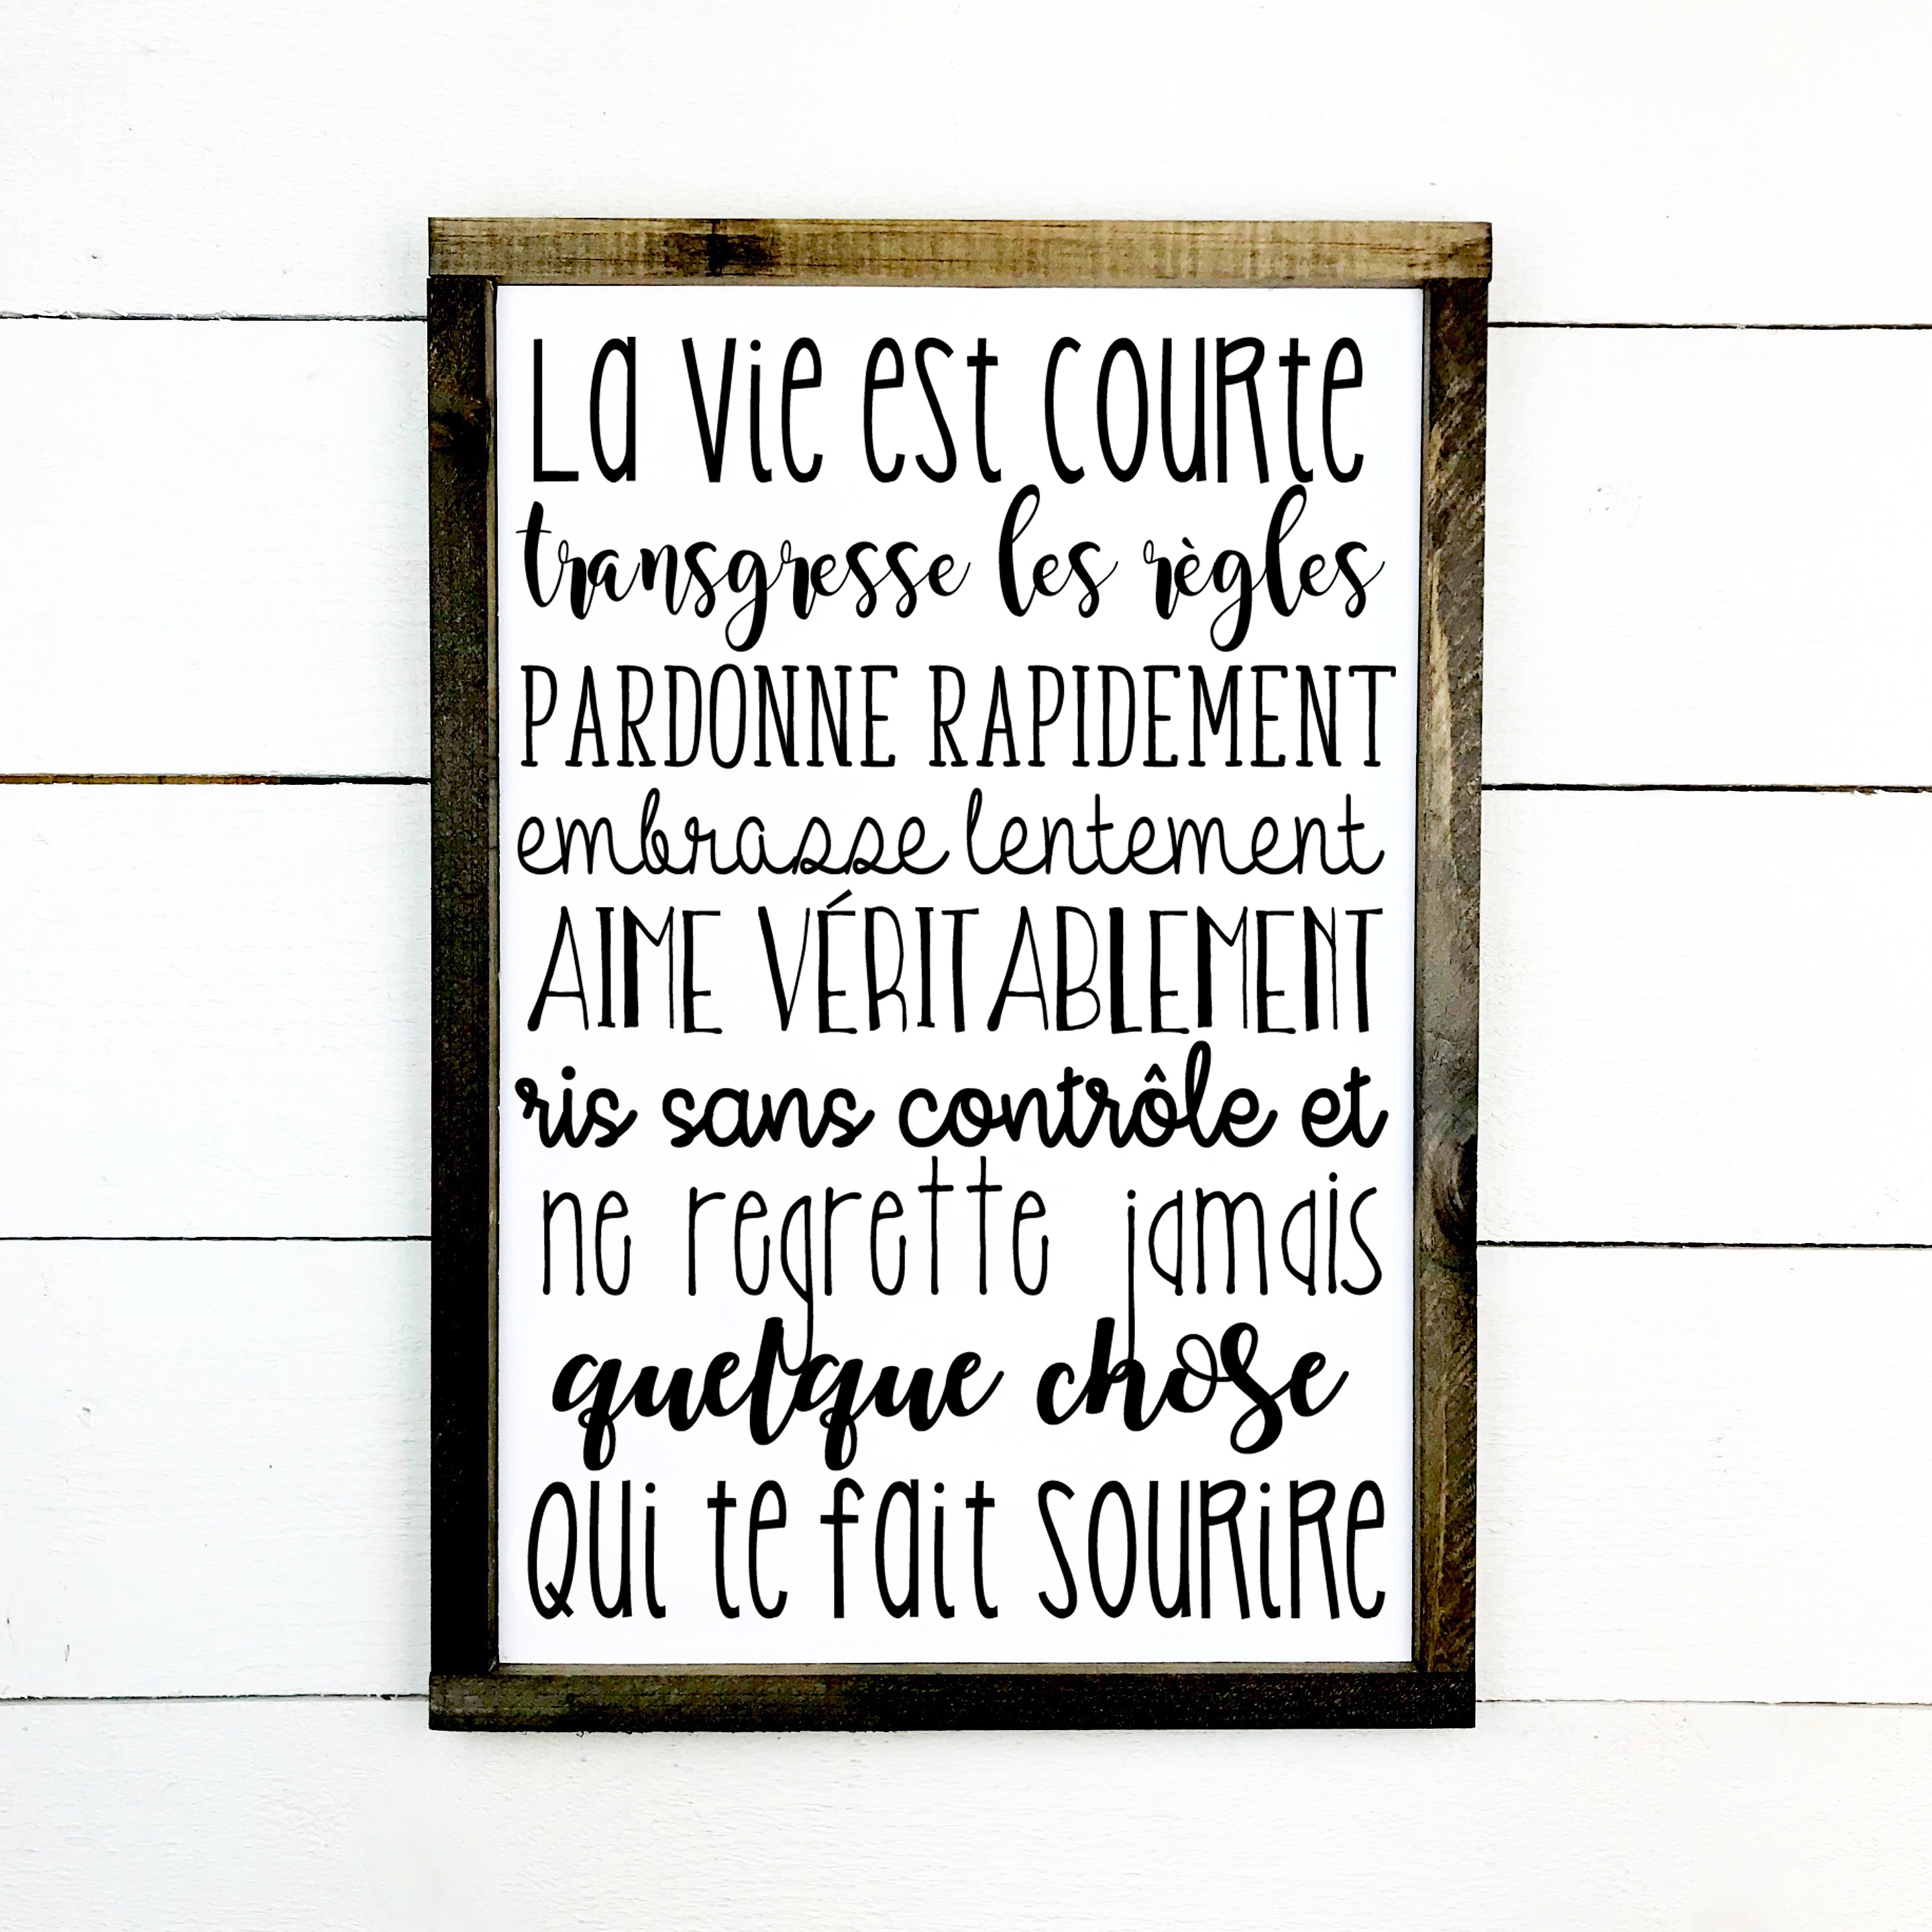 La vie est couRte
transgresse les règles
PARDONNE RAPIDEMENT
embrasse lentement
AIME VÉRITABLEMENT
ris sans contrôle et
ne regrette jamais
quelque chose
Qui te fait souRiRe